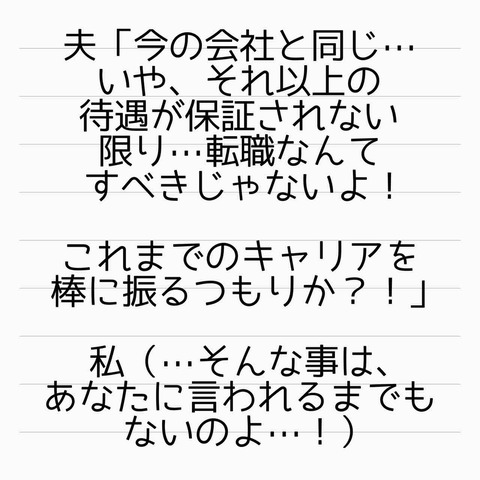 夫「今の会社と同じ…
いや、それ以上の
待遇が保証されない
限り…転職なんて
すべきじゃないよ！
これまでのキャリアを
棒に振るつもりか？！」
私（…そんな事は、
あなたに言われるまでも
ないのよ…！）